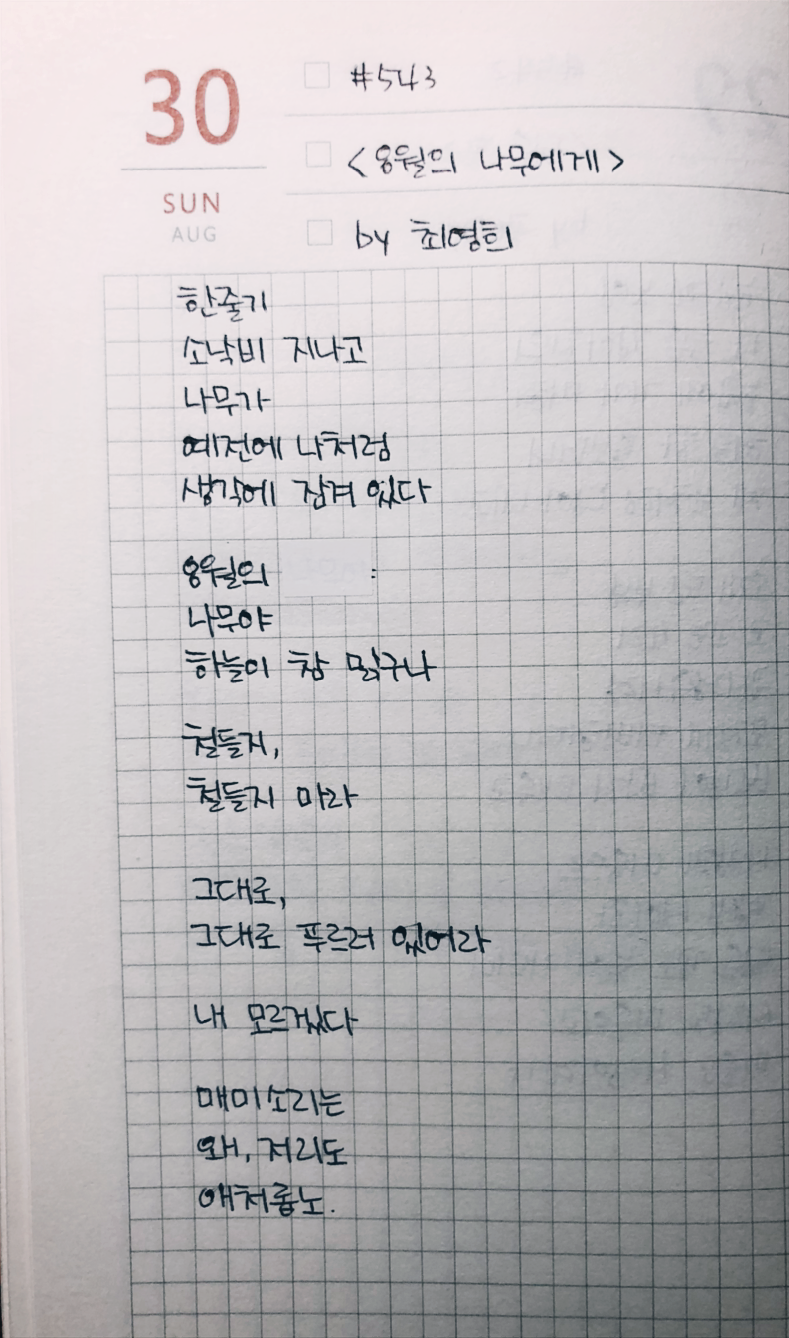 30
SUN
AUG
#543
<8월의 나무에게>
by 최영희
한줄기
소낙비 지나고
나무가
예전에 나처럼
생각에 잠겨 있다
8월의 :
나무야
하늘이 참 맑구나
철들지,
철들지 마라
그대로,
그대로 푸르러 있어라
내 모르겠다
매미소리는
왜, 저리도
애처롭노.